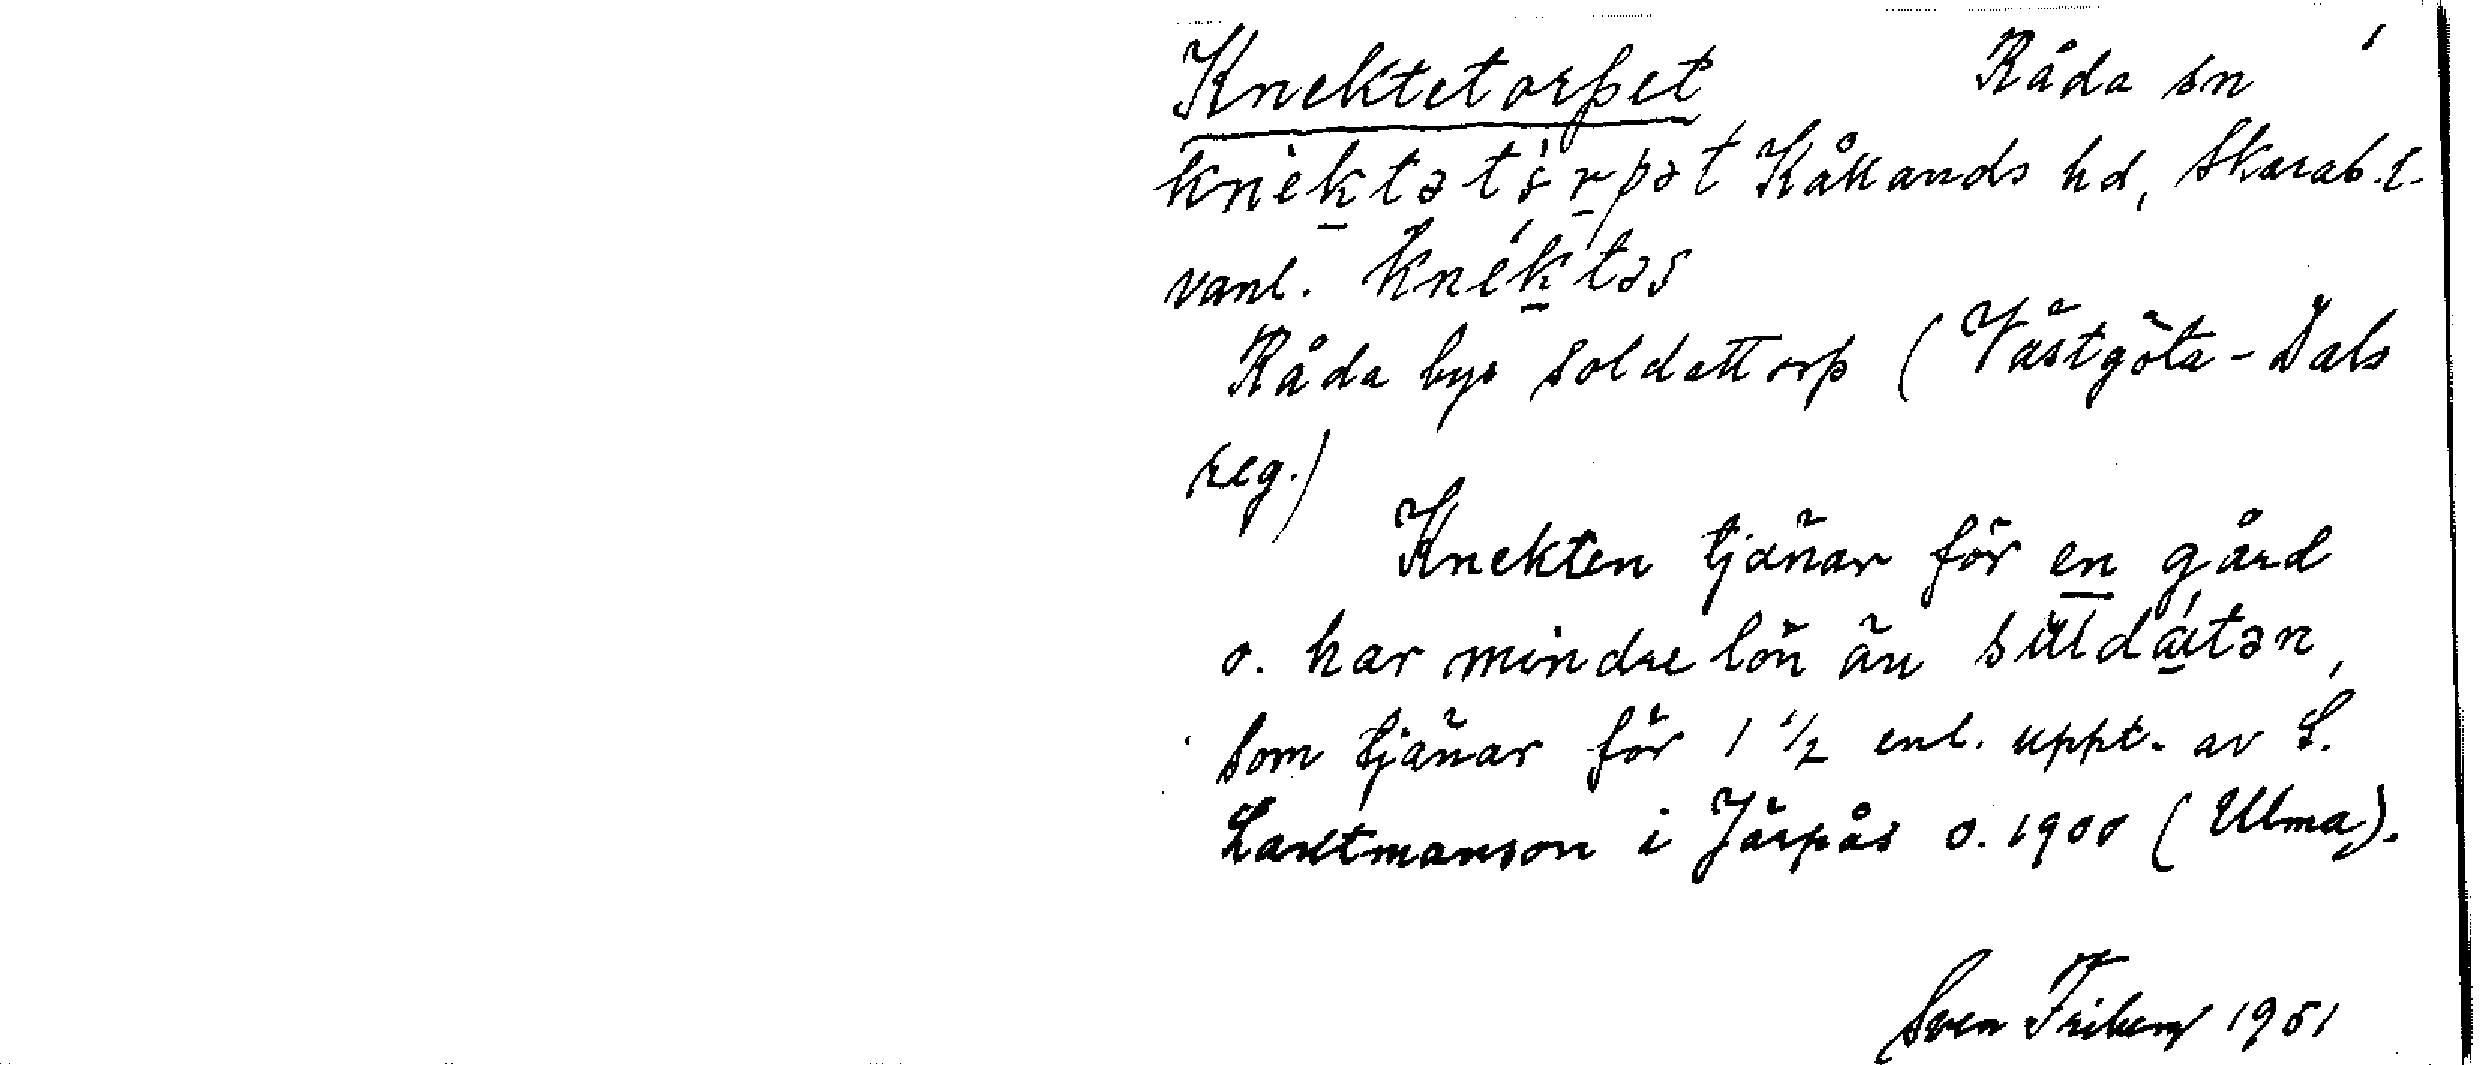 Knektetorpet Råda sn
knèktətȯ̀rpət Kållands hd, Skarab. l.
vanl. knéktəs
Råda bys soldattorp (Västgöta-Dals
reg.)
Knekten tjänar för en gård
o. har mindre lön än suldátən,
som tjänar för 1 1/2 enl. uppt. av S.
Lantmanson i Järpås o. 1900 (Ulma).
Sven Friberg 1951